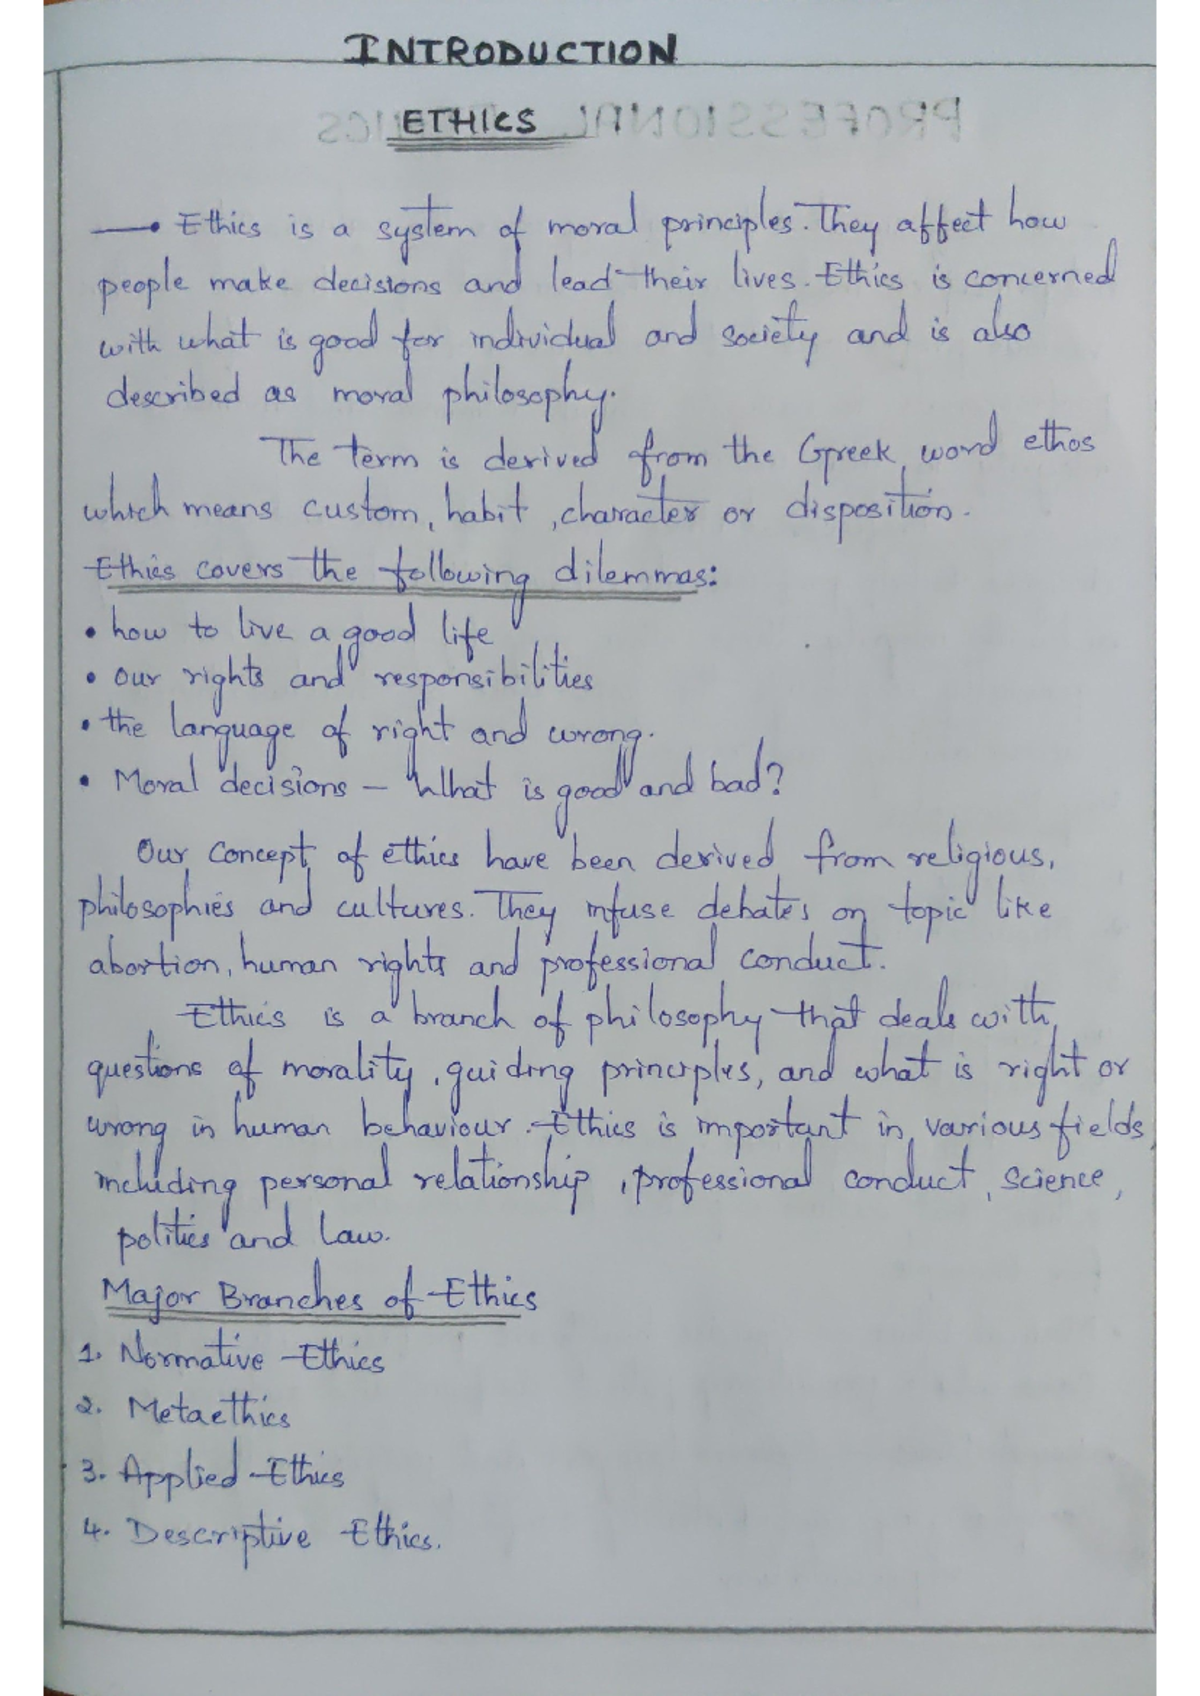 INTRODUCTION
ETHICS
PROFESSIONAL ETHICS
Ethics is a system of moral principles. They affect how
people make decisions and lead their lives. Ethics is concerned
with what is good for individual and society and is also
described as moral philosophy.
The term is derived from the Greek word ethos
which means custom, habit, character or disposition.
Ethics covers the following dilemmas:
• how to live a good life
• our rights and responsibilities
• the language of right and wrong.
• Moral decisions - What is good and bad?
Our concept of ethics have been derived from religious,
philosophies and cultures. They infuse debates on topic like
abortion, human rights and professional conduct.
Ethics is a branch of philosophy that deals with
questions of morality, guiding principles, and what is right or
wrong in human behaviour. Ethics is important in various fields,
including personal relationship, professional conduct, science,
politics and law.
Major Branches of Ethics
1. Normative Ethics
2. Metaethics
3. Applied Ethics
4. Descriptive Ethics.